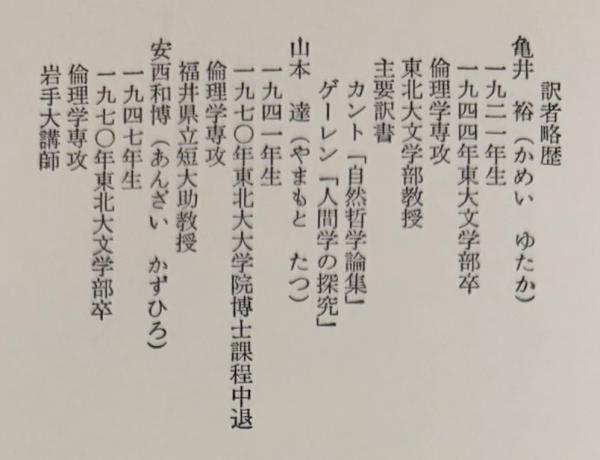 訳者略歴
亀井　裕（かめい　ゆたか）
一九二一年生
一九四四年東大文学部卒
倫理学専攻
東北大文学部教授
主要訳書
カント「自然哲学論集」
ゲーレン『人間学の探究』
山本　達（やまもと　たつ）
一九四一年生
一九七〇年東北大大学院博士課程中退
倫理学専攻
福井県立短大助教授
安西和博（あんざい　かずひろ）
一九四七年生
一九七〇年東北大文学部卒
倫理学専攻
岩手大講師